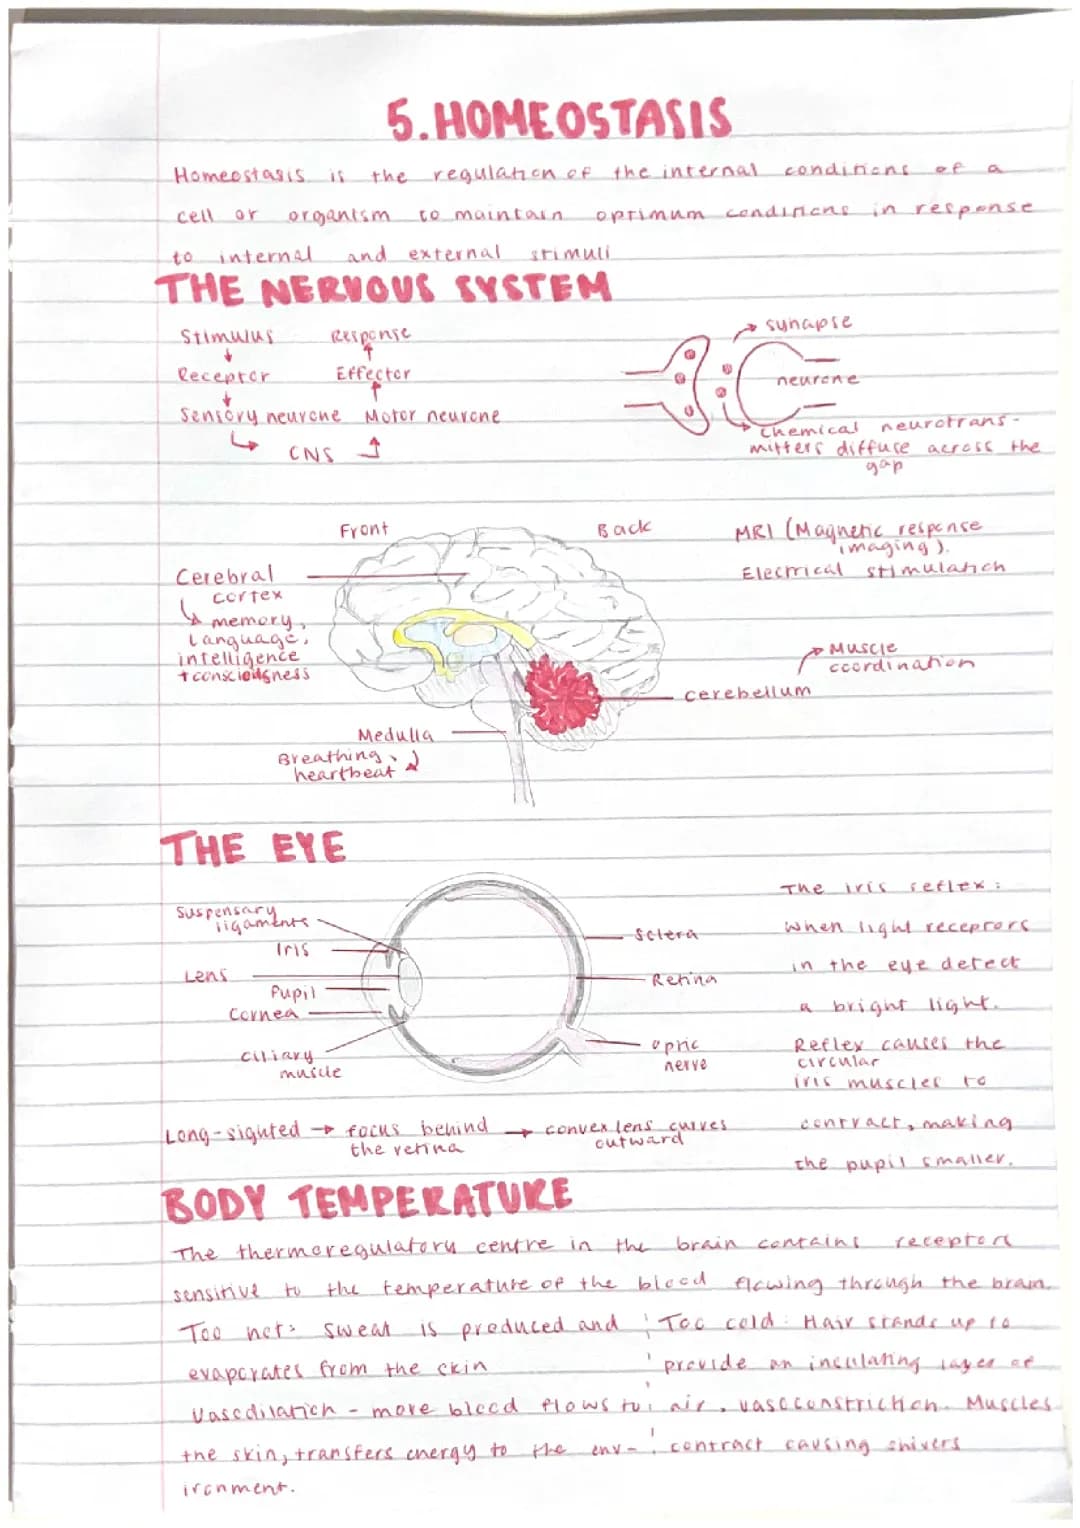 5. HOMEOSTASIS
Homeostasis is the regulation of the internal conditions of a
cell or organism to maintain optimum conditions in response
to internal and external stimuli
THE NERVOUS SYSTEM
Stimulus
Receptor
Sensory neurone
CNS
Motor neurone
Effector
Response
synapse
neurone
Chemical neurotrans-
mitters diffuse across the
gap
Front
Back
MRI (Magnetic response
imaging).
Electrical stimulation
Cerebral
cortex
memory,
language,
intelligence
+ consciousness
Muscle
coordination
cerebellum
Medulla
Breathing,
heartbeat
THE EYE
Suspensary
ligaments
Iris
Lens
Pupil
Cornea
ciliary
muscle
Sclera
Retina
optic
nerve
The iris reflex:
When light receptors
in the eye detect
a bright light.
Reflex causes the
circular
iris muscles to
contract, making
the pupil smaller.
Long-sighted → focus behind
the retina
→ convex lens curves
outward
BODY TEMPERATURE
The thermoregulatory centre in the brain contains receptors
sensitive to the temperature of the blood flowing through the brain.
Too hot: sweat is produced and
evaporates from the skin
Vasodilation - more blood flows to
the skin, transfers energy to the env-
ironment.
Too cold: Hair stands up to
provide an insulating layer of
air, vasoconstriction. Muscles
contract causing shivers